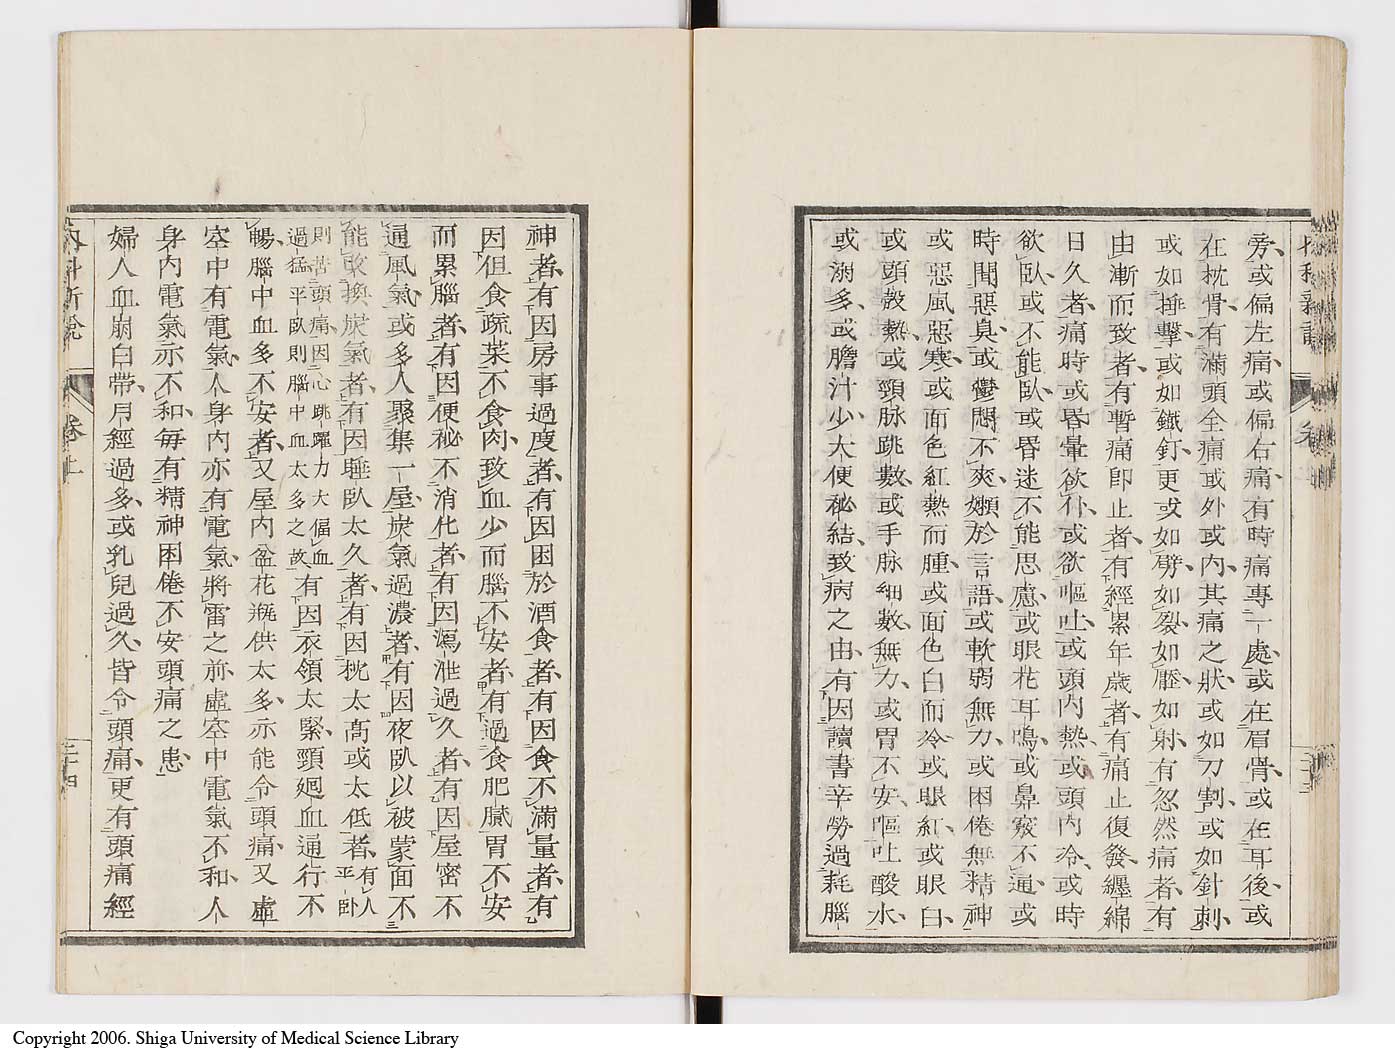 旁或偏左痛或偏右痛有時痛專一處或在眉骨或在耳後或
在枕骨有滿頭全痛或外或内其痛之狀或如刀割或如針刺
或如捶擊或如鐵釘更或如劈如裂如壓如射有忽然痛者有
由漸而致者有暫痛即止者有經累年歲者有痛止復發纏綿
日久者痛時或昏暈欲仆或欲嘔吐或頭内熱或頭内冷或時
欲臥或不能臥或昏迷不能思慮或眼花耳鳴或鼻竅不通或
時聞惡臭或鬱悶不爽嬾於言語或軟弱無力或困倦無精神
或惡風惡寒或面色紅熱而腫或面色白而冷或眼紅或眼白
或頭殼熱或頸脉跳數或手脉細數無力或胃不安嘔吐酸水
或溺多或膽汁少大便秘結致病之由有因讀書辛勞過耗腦
神者有因房事過度者有因困於酒食者有因食不滿量者有
因但食蔬菜不食肉致血少而腦不安者有過食肥膩胃不安
而累腦者有因便秘不消化者有因瀉泄過久者有因屋密不
通風氣或多人聚集一屋炭氣過濃者有因夜臥以被蒙面不
能改換炭氣者有因睡臥太久者有因枕太高或太低者有人平臥
則苦頭痛因心跳躍力大偪血
過猛平臥則腦中血太多之故有因衣領太緊頸廻血通行不
暢腦中血多不安者又屋内盆花瓶供太多亦能令頭痛又虛
空中有電氣人身内亦有電氣將雷之前虛空中電氣不和人
身内電氣亦不和每有精神困倦不安頭痛之患
婦人血崩白帶月經過多或乳兒過久皆令頭痛更有頭痛經
内科新說
卷上
二十四
二十三
Copyright 2006. Shiga University of Medical Science Library